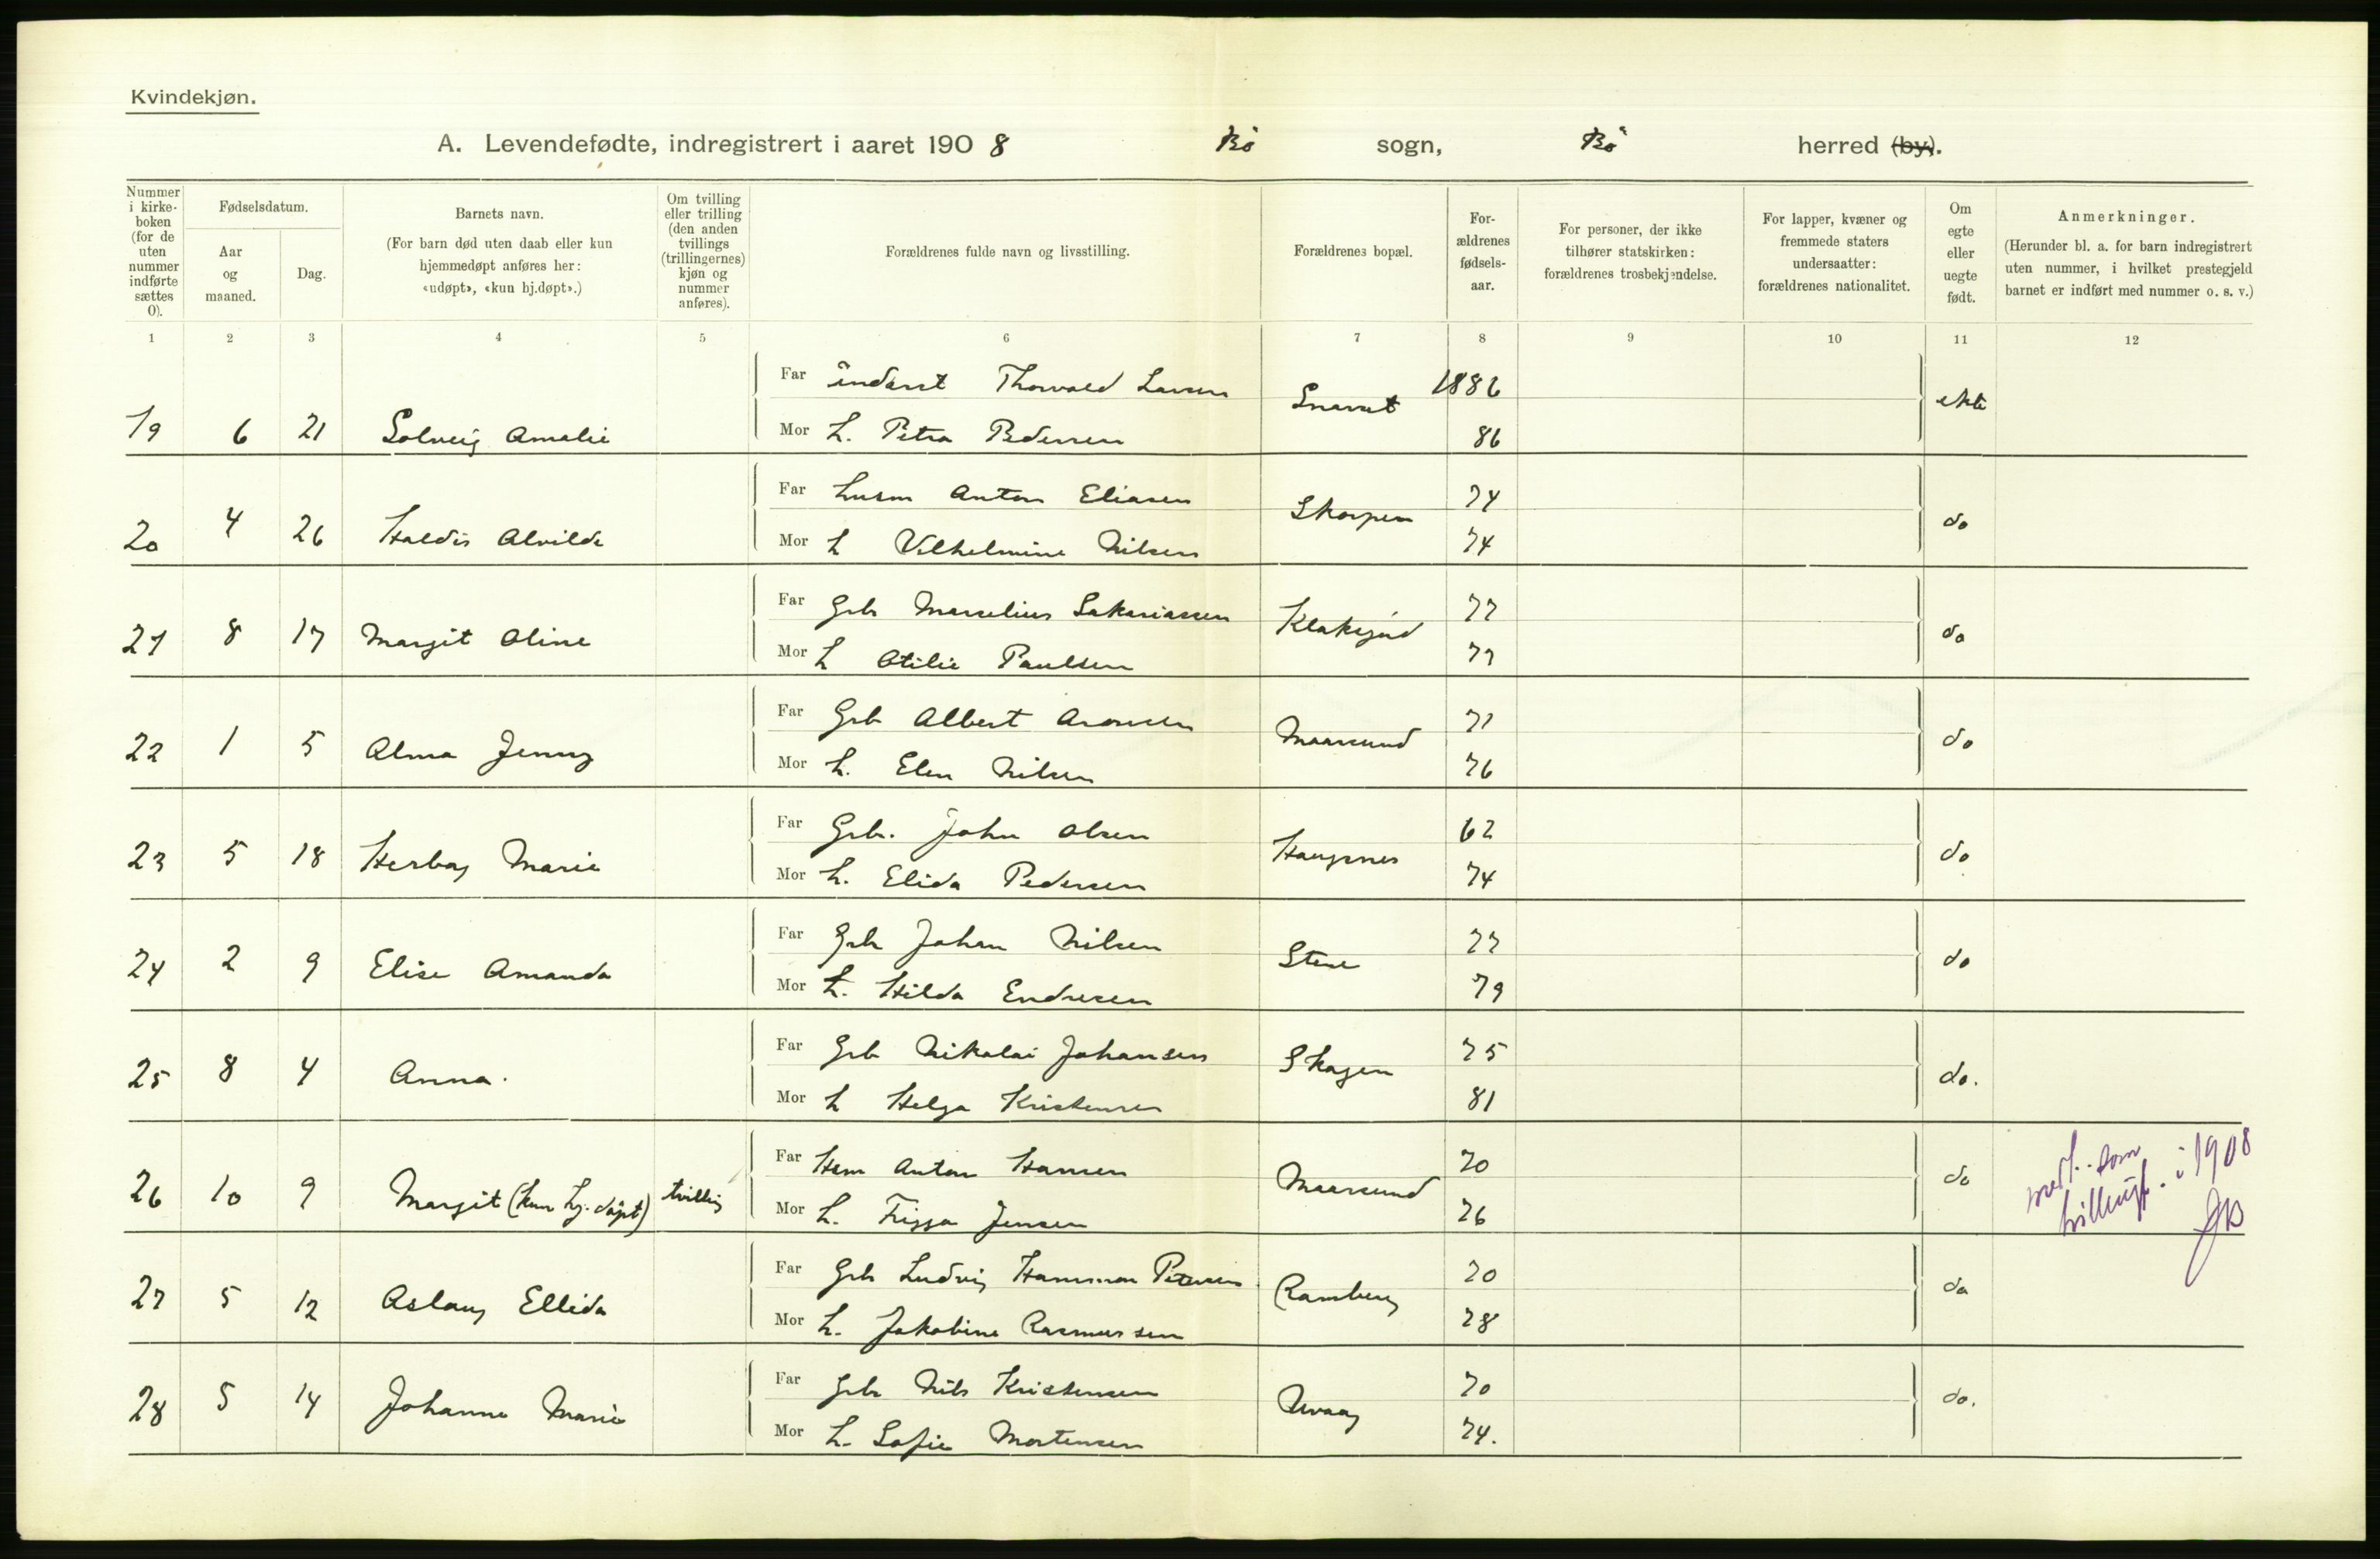 Kvindekjøn.
A. Levendefødte, indregistrert i aaret 1908 Bö sogn, Bö herred (by).
Nummer i kirke-boken (for de uten nummer indførte sættes 0).
Fødselsdatum.
Aar og maaned.
Dag.
Barnets navn.
(For barn død uten daab eller kun hjemmedøpt anføres her: «udøpt», «kun hj.døpt».)
Om tvilling eller trilling (den anden tvillings (trillingernes) kjøn og nummer anføres).
Forældrenes fulde navn og livsstilling.
Forældrenes bopæl.
For-ældrenes fødsels-aar.
For personer, der ikke tilhører statskirken: forældrenes trosbekjendelse.
For lapper, kvæner og fremmede staters undersaatter: forældrenes nationalitet.
Om egte eller uegte født.
Anmerkninger.
(Herunder bl. a. for barn indregistrert uten nummer, i hvilket prestegjeld barnet er indført med nummer o. s. v.)
1 2 3 4 5 6 7 8 9 10 11 12
Far inderst Thorvald Larsen 1886
19 6 21 Solveig Amalie Snarset ekte
Mor h. Petra Pedersen 86
Far husm Anton Eliasen 74
20 4 26 Haldis Alvilde Skorpen do
Mor h Vilhelmine Nilsen 74
Far Grb Marselius Sakariassen 77
21 8 17 Margit Oline Klaksjord do
Mor h Otilie Paulsen 77
Far Grb Albert Aronsen 71
22 1 5 Alma Jenny Maarsund do
Mor h. Elen Nilsen 76
Far Grb. John Olsen 62
23 5 18 Herbog Marie Haugsnes do
Mor h. Elida Pedersen 74
Far Grb Johan Nilsen 77
24 2 9 Elise Amanda Stene do
Mor h. Hilda Endresen 79
Far Grb Nikolai Johansen 75
25 8 4 Anna. Skagen do.
Mor h Helga Kristensen 81
Far Hsm Anton Hansen 70
26 10 9 Margit (kun hj. døpt) tvilling Maarsund do
Mor h. Frigga Jensen 76
som i 1908
Far Grb Ludvig Hammer Petersen 70
27 5 12 Aslaug Ellida Ramberg do
Mor h. Jakobine Rasmussen 78
Far Grb Nils Kristensen 70
28 5 14 Johanne Marie Uvaag do.
Mor h. Sofie Mortensen 74.